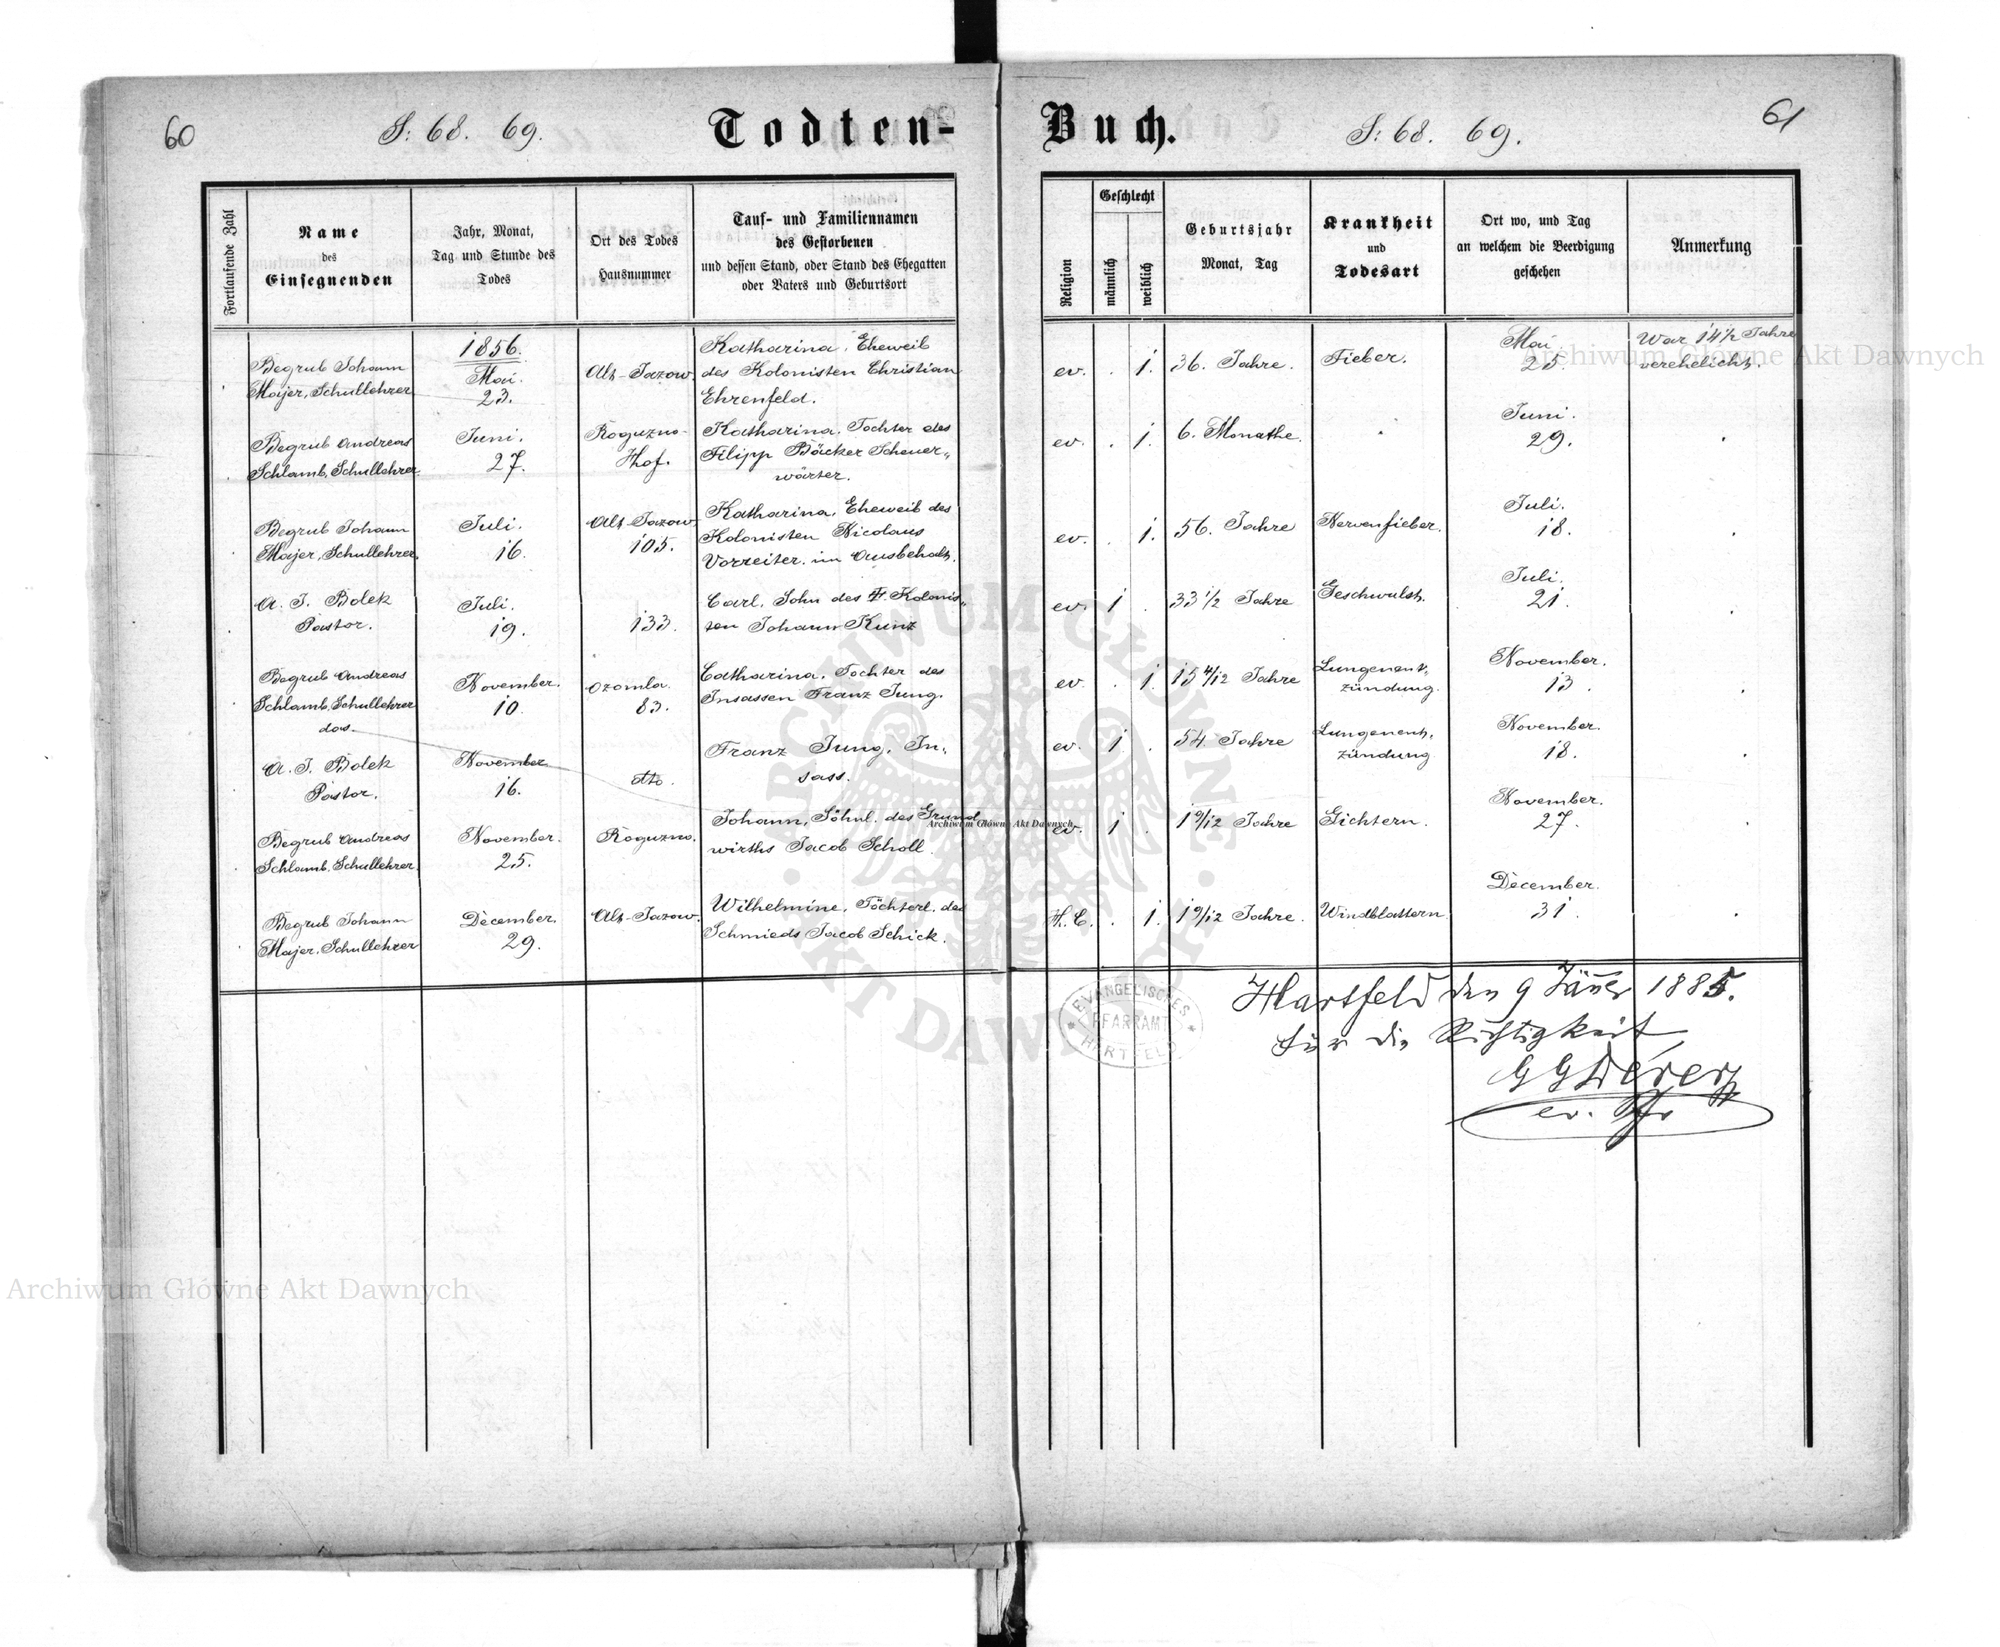 60
S: 68. 69.
Todten-
Buch.
S: 68. 69.
61
Fortlaufende Zahl
Name
des
Einsegnenden
Jahr, Monat,
Tag und Stunde des
Todes
Ort des Todes
Hausnummer
Tauf- und Familiennamen
des Gestorbenen
und dessen Stand, oder Stand des Ehegatten
oder Vaters und Geburtsort
Religion
Geschlecht
männlich
weiblich
Geburtsjahr
Monat, Tag
Krankheit
und
Todesart
Ort wo, und Tag
an welchem die Beerdigung
geschehen
Anmerkung
Begrub Johann
Majer, Schullehrer
1856.
Mai.
23.
Alt-Jazow.
Katharina, Eheweib
des Kolonisten Christian
Ehrenfeld.
ev. . 1. 36. Jahre. Fieber.
Mai.
25.
War 14 1/2 Jahre
verehelicht.
Begrub Andreas
Schlamb, Schullehrer.
Juni.
27.
Roguzno-
Hof.
Katharina, Tochter des
Filipp Bäcker Scheuer„
wärter.
ev. . 1. 6. Monathe.
Juni.
29.
Begrub Johann
Majer, Schullehrer.
Juli.
16.
Alt-Jazow.
105.
Katharina, Eheweib des
Kolonisten Nicolaus
Vorreiter. im Ausbehalt.
ev. . 1. 56. Jahre Nervenfieber.
Juli.
18.
A. J. Bolek
Pastor.
Juli.
19.
133.
Carl, Sohn des Kolonis„
ten Johann Kunz
ev. 1 . 33 1/2 Jahre Geschwulst.
Juli.
21.
Begrub Andreas
Schlamb, Schullehrer
das.
November.
10.
Ozomla.
83.
Catharina, Tochter des
Insassen Franz Jung.
ev. . 1. 15 4/12 Jahre
Lungenent„
zündung.
November.
13.
A. J. Bolek
Pastor.
November
16.
dto.
Franz Jung, In„
sass.
ev. 1 . 54. Jahre
Lungenent„
zündung
November.
18.
Begrub Andreas
Schlamb, Schullehrer.
November.
25.
Roguzno.
Johann, Söhnl. des Grund
wirths Jacob Scholl.
ev. 1 . 1 9/12 Jahre Gichtern.
November.
27.
Begrub Johann
Majer, Schullehrer
December.
29.
Alt-Jazow.
Wilhelmine, Töchterl. des
Schmieds Jacob Schick.
H. C. . 1. 1 9/12 Jahre. Windblattern.
December.
31.
Hartfeld den 9 Jänner 1885.
Für die Richtigkeit
ev. Pfr
EVANGELISCHES
PFARRAMT
HARTFELD
ARCHIWUM GŁÓWNE AKT DAWNYCH
Archiwum Główne Akt Dawnych
Archiwum Główne Akt Dawnych
Archiwum Główne Akt Dawnych